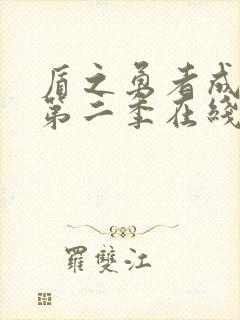 盾之勇者成
第二季在线
羅雙江